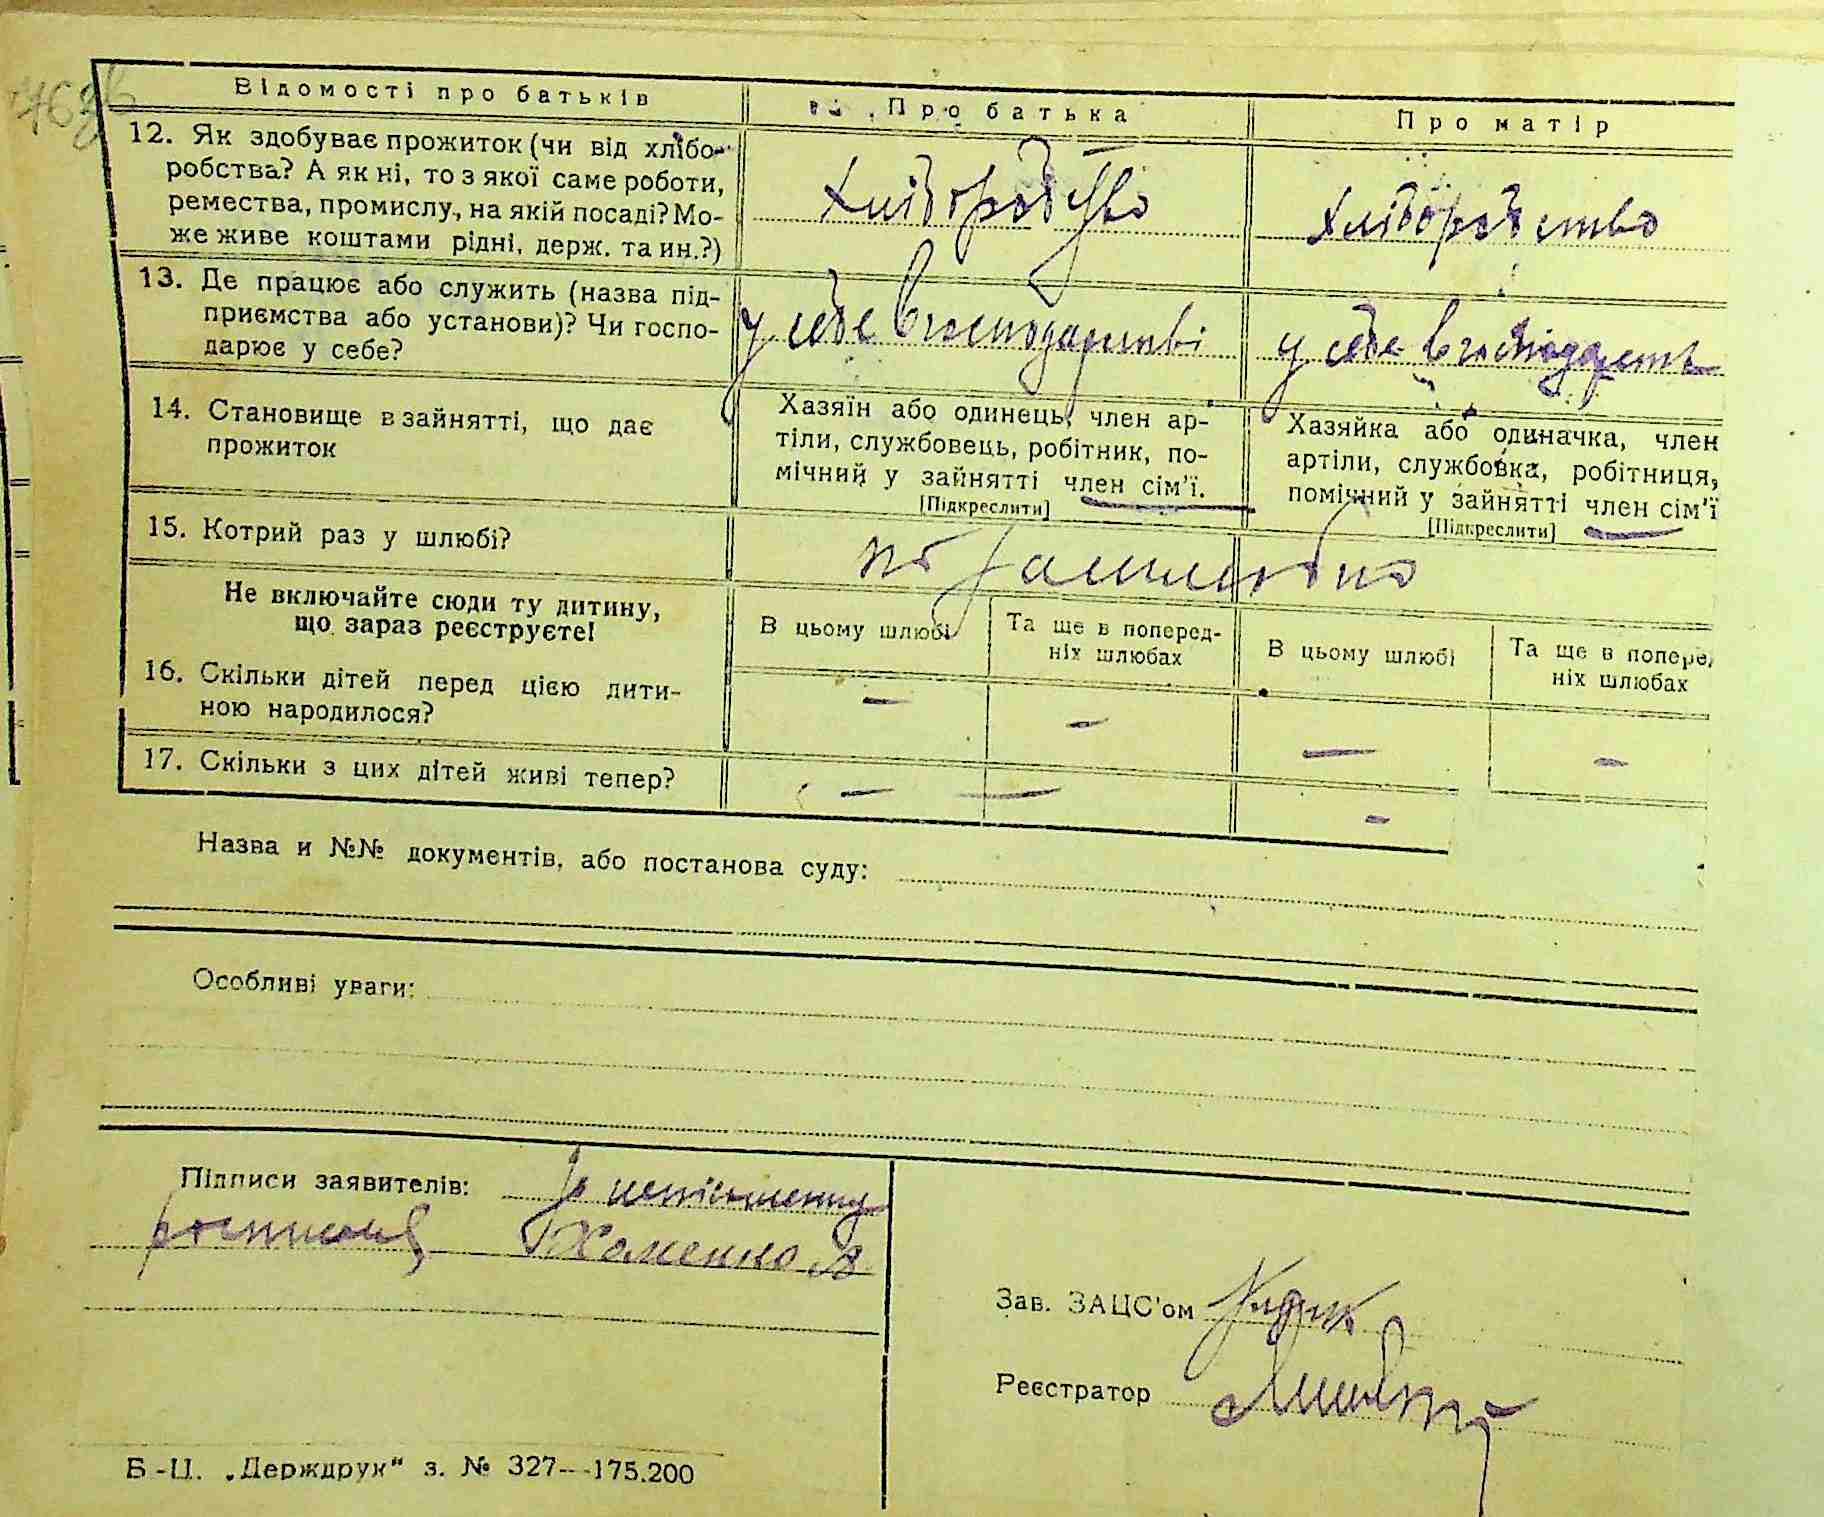 Відомості про батьків
Про батька
Про матір
12. Як здобуває прожиток (чи від хлібо-
робства? А як ні, то з якої саме роботи,
ремества, промислу, на якій посаді? Мо-
же живе коштами рідні, держ. та ин.?)
Хліборобство
Хліборобство
13. Де працює або служить (назва під-
приємства або установи)? Чи госпо-
дарює у себе?
у себе в господарстві
у себе в господарстві
14. Становище в зайнятті, що дає
прожиток
Хазяїн або одинець, член ар-
тіли, службовець, робітник, по-
мічний у зайнятті член сім'ї.
[Підкреслити]
Хазяйка або одиначка, член
артіли, службовка, робітниця,
помічний у зайнятті член сім'ї
[Підкреслити]
15. Котрий раз у шлюбі?
Не включайте сюди ту дитину,
що зараз реєструєте!
В цьому шлюбі
Та ще в поперед-
ніх шлюбах
В цьому шлюбі
Та ще в попере
ніх шлюбах
16. Скільки дітей перед цією дити-
ною народилося?
— — — —
17. Скільки з цих дітей живі тепер?
— — —
Назва и №№ документів, або постанова суду:
Особливі уваги:
Підписи заявителів: За неписьменну
росписався Хоменко
Зав. ЗАЦС'ом
Реєстратор
Б.-Ц. „Держдрук“ з. № 327—175.200